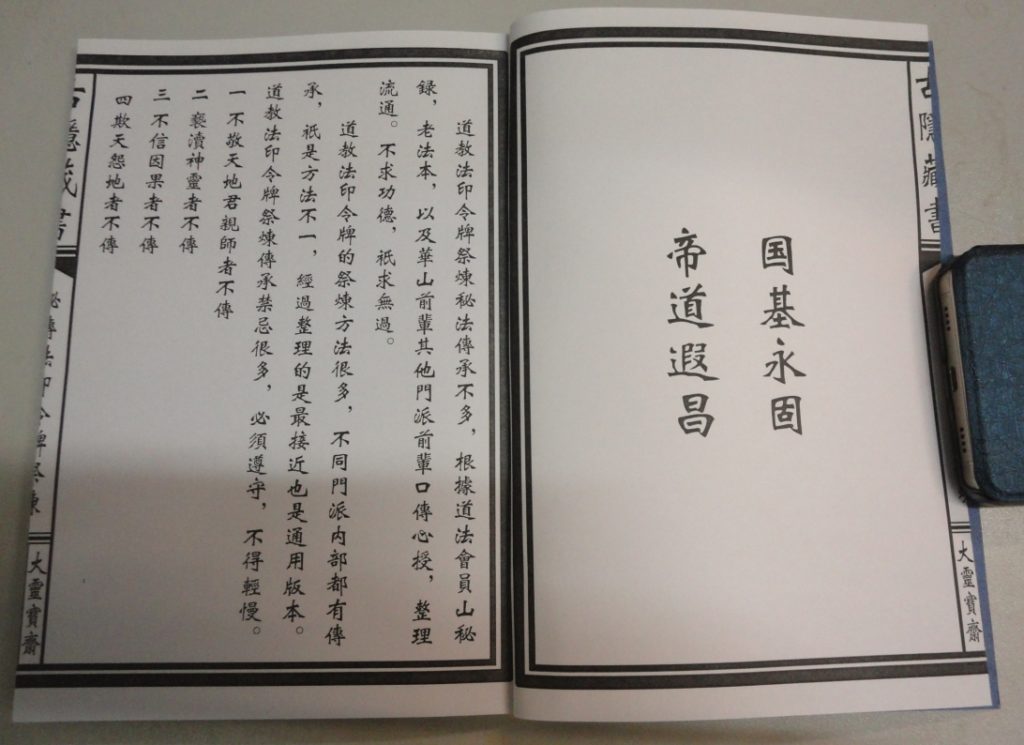 国基永固
帝道遐昌
古隱藏書
大靈寶齋
道教法印令牌祭煉秘法傳承不多，根據道法會員山秘
録，老法本，以及華山前輩其他門派前輩口傳心授，整理
流通。不求功德，祇求無過。
道教法印令牌的祭煉方法很多，不同門派内部都有傳
承，祇是方法不一，經過整理的是最接近也是通用版本。
道教法印令牌祭煉傳承禁忌很多，必須遵守，不得輕慢。
一不敬天地君親師者不傳
二褻瀆神靈者不傳
三不信因果者不傳
四欺天怨地者不傳
古隱藏書
秘傳法印令牌祭煉
大靈寶齋